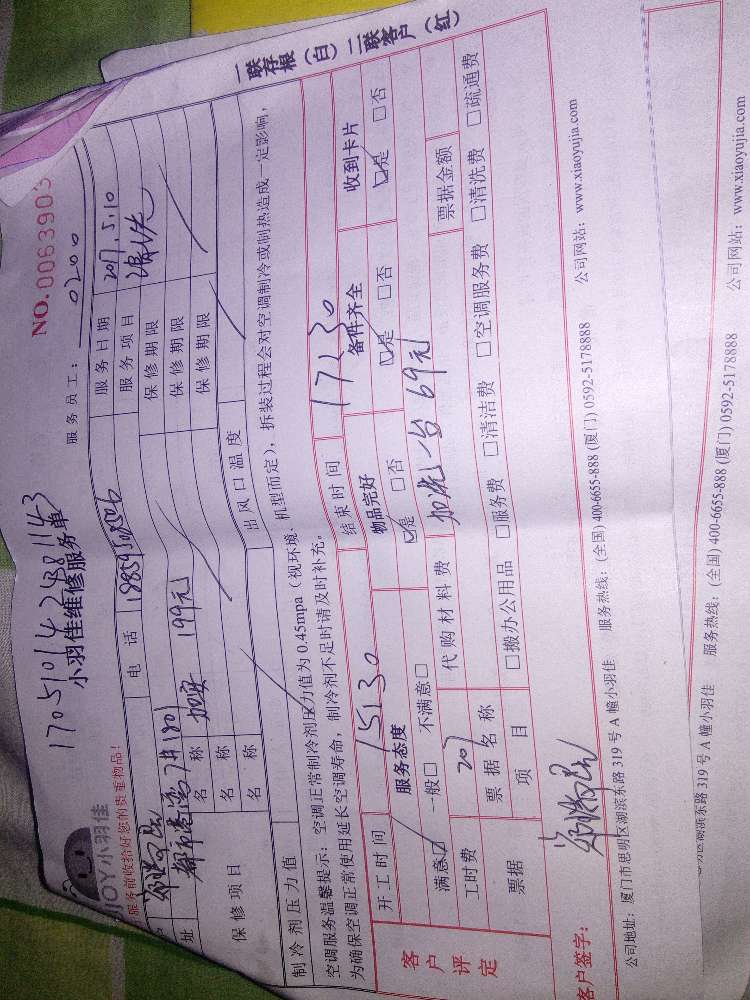 NO.0063903
170510142381143
小羽佳维修服务单
服务员工： 0200
JOY小羽佳
服务前收拾好您的贵重物品！
电 话
服务日期 2017.5.10
址 7# 1801
服务项目 清洗
保修项目
名 称 加安 199元 保修期限
名 称 保修期限
名 称 保修期限
制冷剂压力值 出风口温度
空调服务温馨提示：空调正常制冷剂压力值为 0.45mpa（视环境、机型而定），拆装过程会对空调制冷或制热造成一定影响，
为确保空调正常使用延长空调寿命，制冷剂不足时请及时补充。
一联存根（白）二联客户（红）
客户评定
开工时间 15:30 结束时间 17:30
服务态度 物品完好 备件齐全 收到卡片
满意☑ 一般□ 不满意□ ☑是 □否 ☑是 □否 ☑是 □否
工时费 207 代购材料费 加洗一台 69元
票据 票据名称 票据金额
项 目 □搬办公用品 □服务费 □清洁费 □空调服务费 □清洗费 □疏通费
客户签字：
公司地址：厦门市思明区湖滨东路 319 号 A 幢小羽佳 服务热线：(全国) 400-6655-888 (厦门) 0592-5178888 公司网站：www.xiaoyujia.com
湖滨东路 319 号 A 幢小羽佳 服务热线：(全国) 400-6655-888 (厦门) 0592-5178888 公司网站：www.xiaoyujia.com